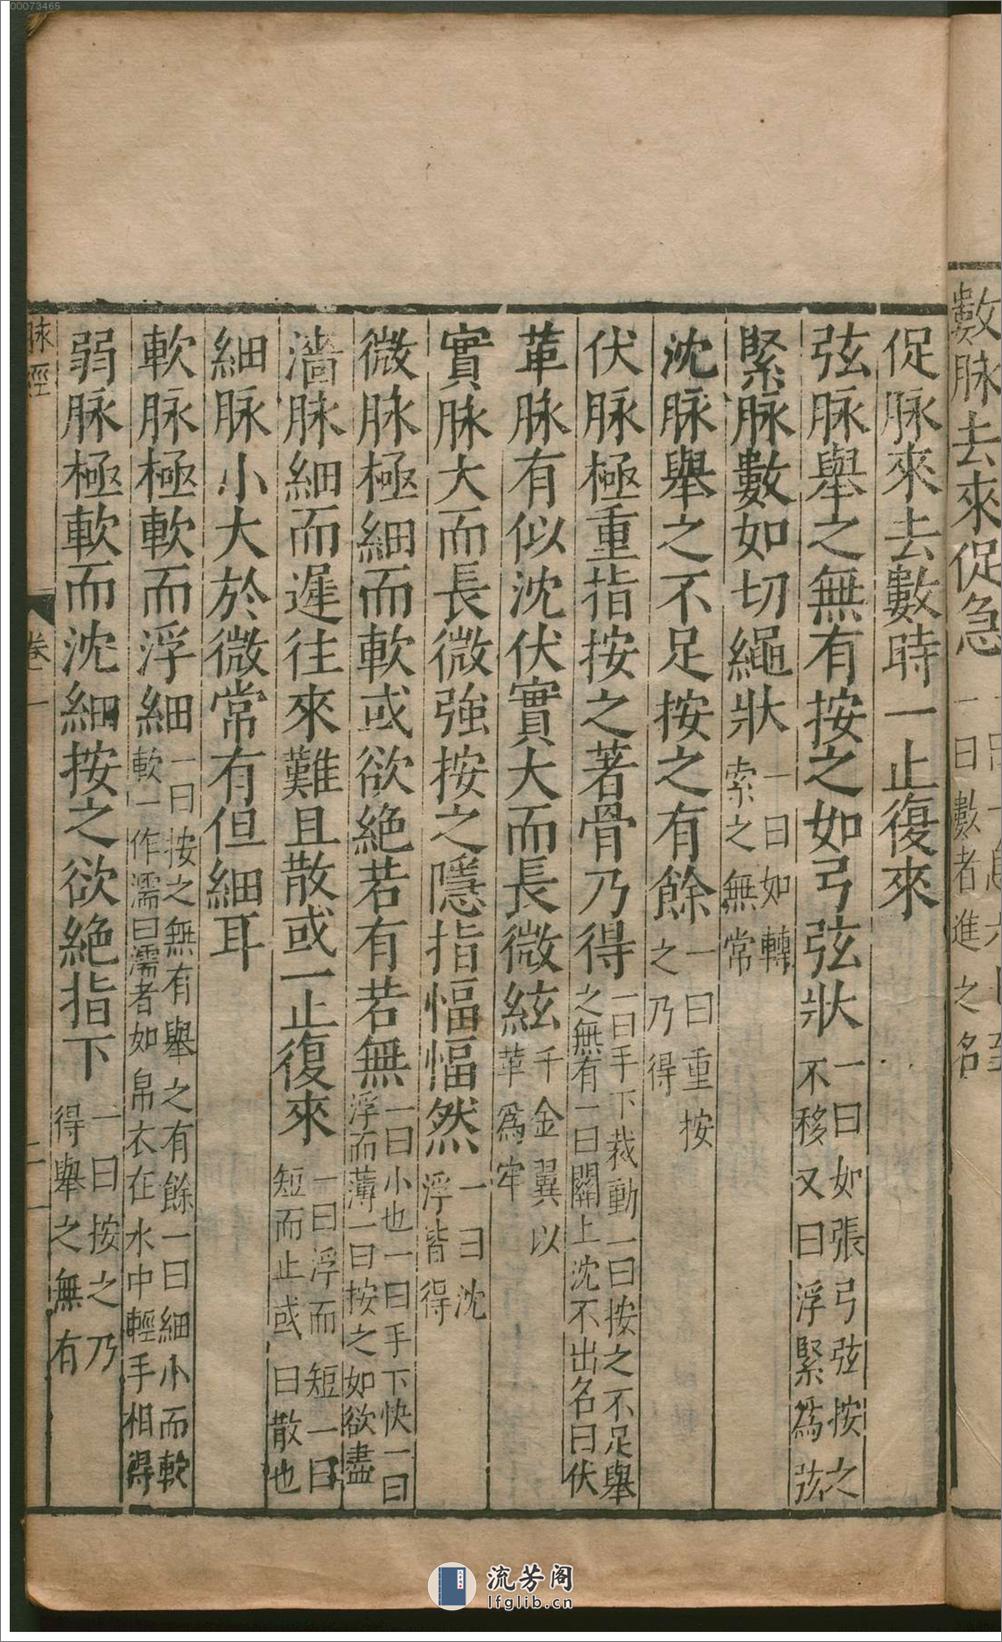 00073465
數脉去來促急一曰數者進之名
促脉來去數時一止復來
弦脉舉之無有按之如弓弦狀一曰如張弓弦按之不移又曰浮緊爲弦
緊脉數如切繩狀一曰如轉索之無常
沈脉舉之不足按之有餘一曰重按之乃得
伏脉極重指按之著骨乃得一曰手下裁動一曰按之不足舉之無有一曰關上沈不出名曰伏
革脉有似沈伏實大而長微絃千金翼以革爲牢
實脉大而長微強按之隱指愊愊然一曰沈浮皆得
微脉極細而軟或欲絶若有若無一曰小也一曰手下快一曰浮而薄一曰按之如欲盡
濇脉細而遲往來難且散或一止復來一曰浮而短一曰短而止或曰散也
細脉小大於微常有但細耳
軟脉極軟而浮細一曰按之無有舉之有餘一曰細小而軟軟一作濡曰濡者如帛衣在水中輕手相得
弱脉極軟而沈細按之欲絶指下一曰按之乃得舉之無有
脉經 卷一 二
流芳阁
lfglib.cn